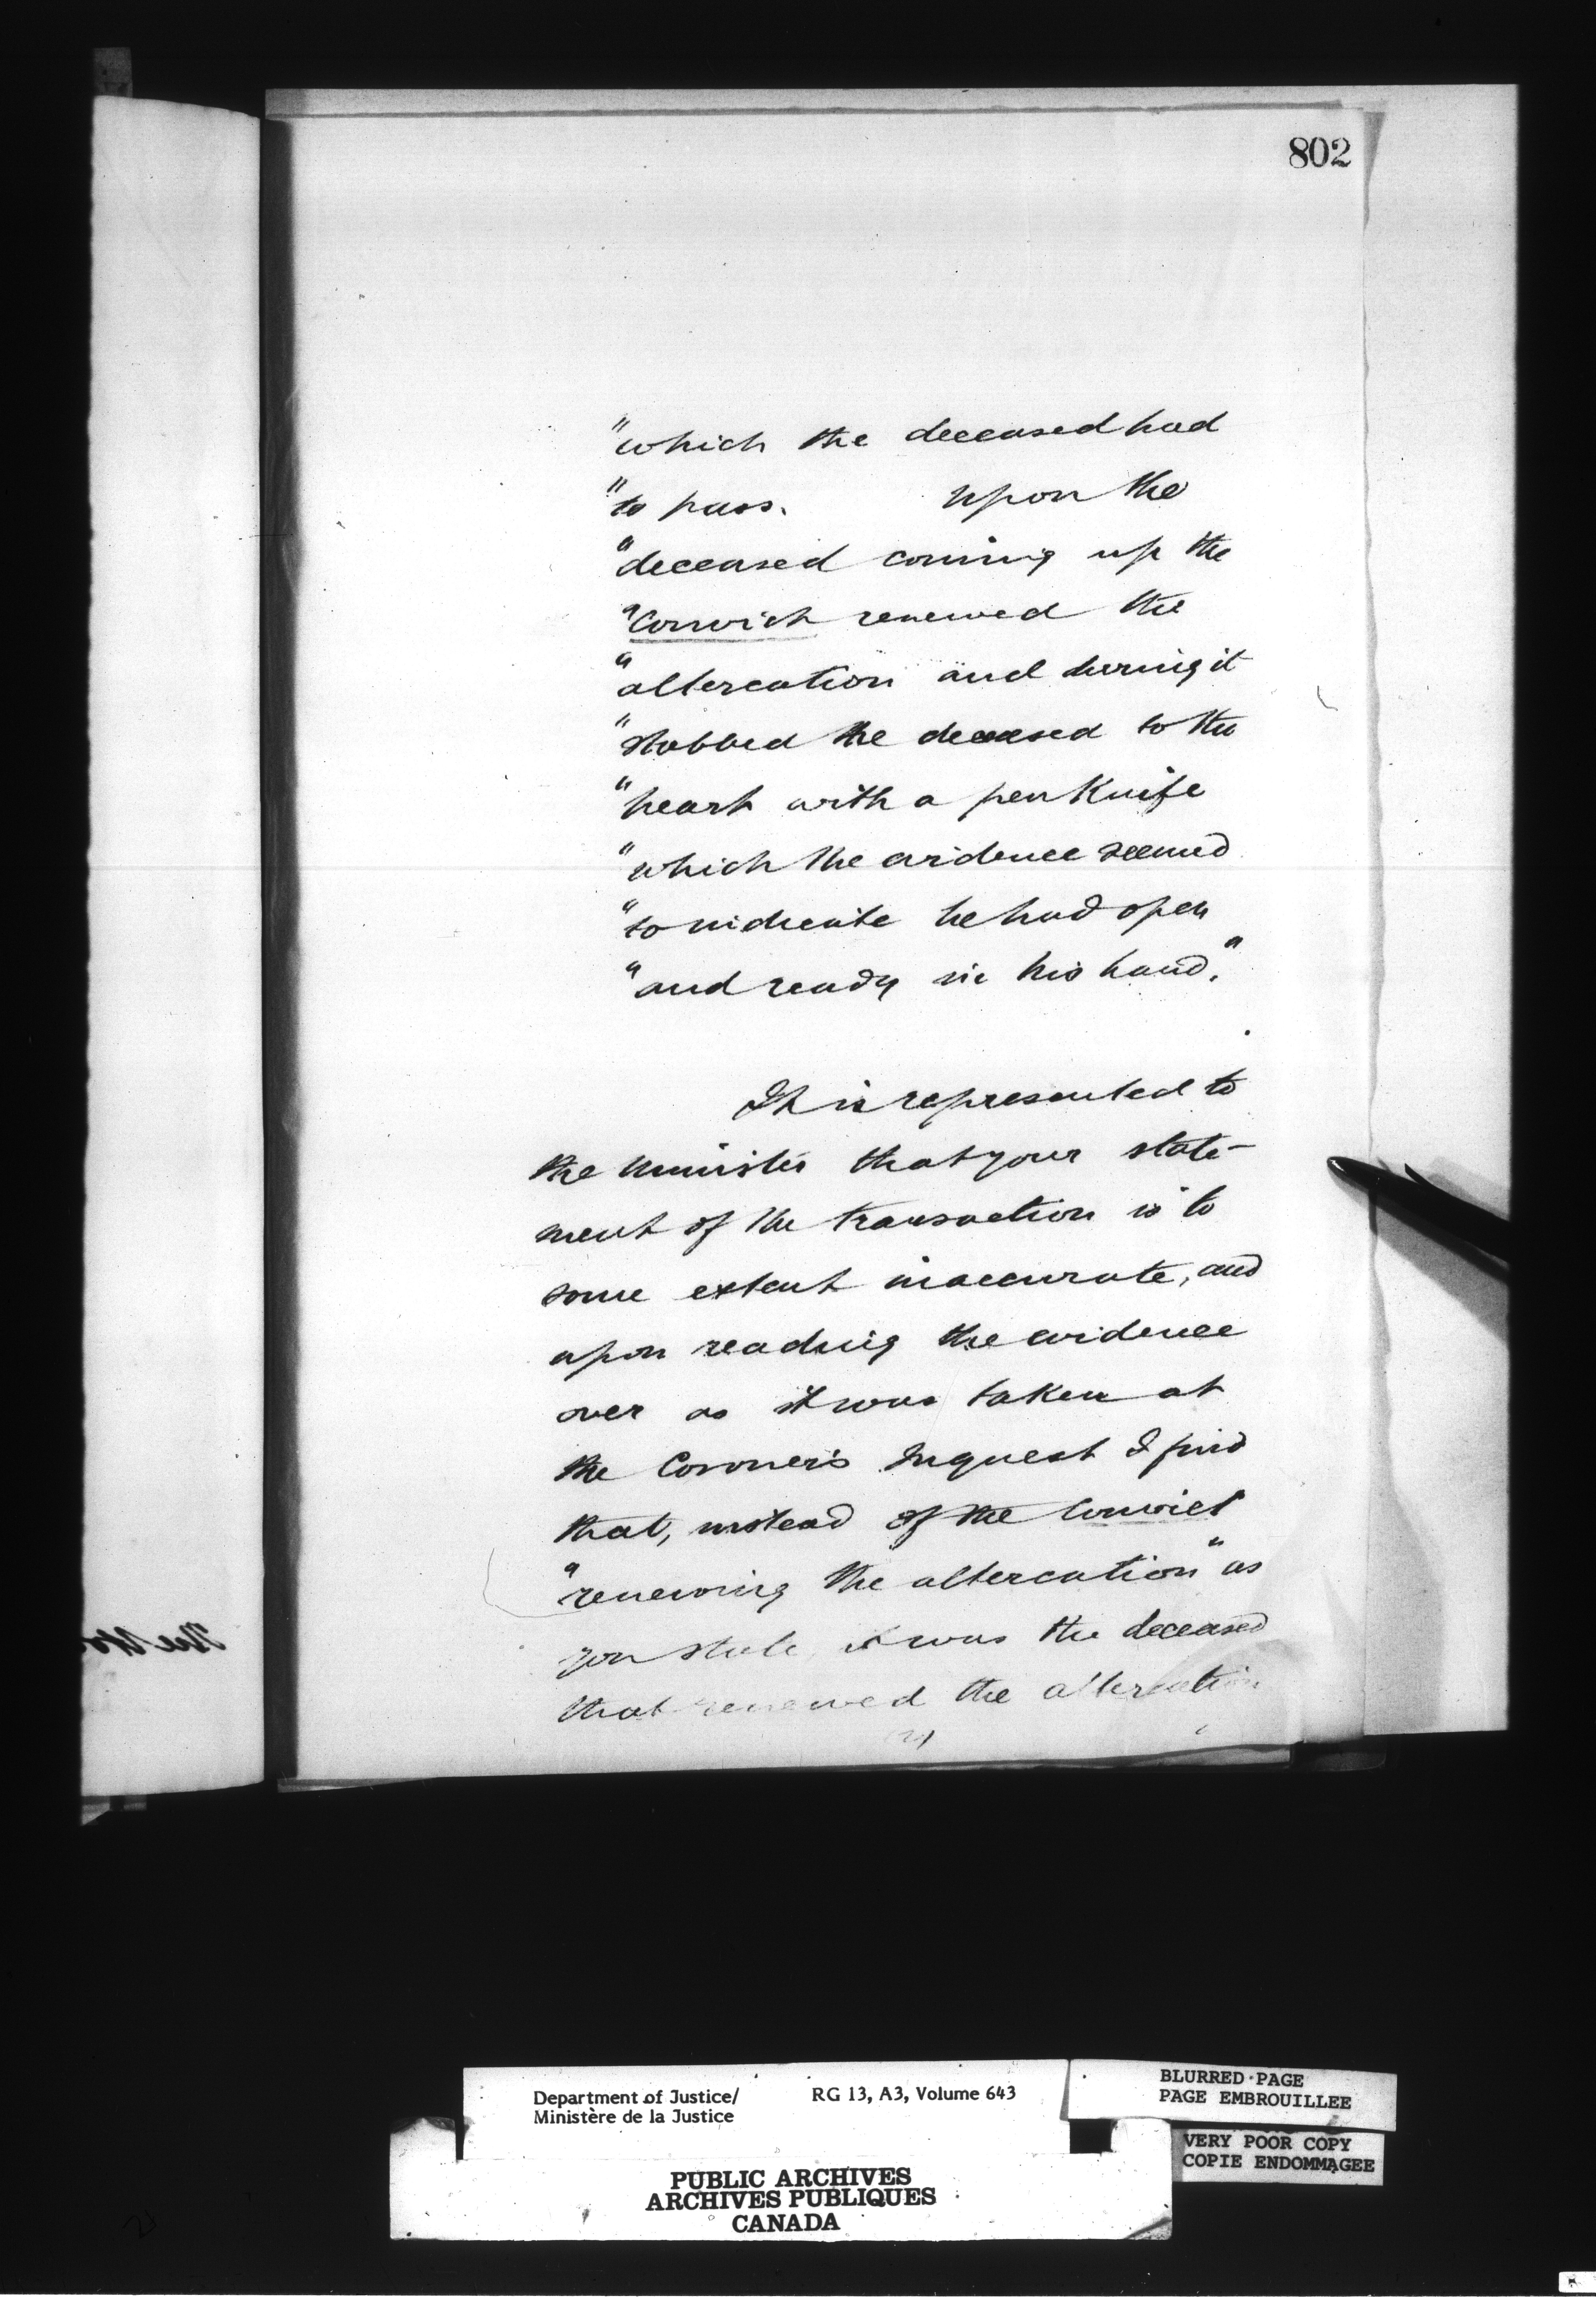 802
"which the deceased had
"to pass. Upon the
"deceased coming up the
"Convict renewed the
"altercation and during it
"stabbed the deceased to the
"heart with a pen Knife
"which the evidence seemed
"to indicate he had open
"and ready in his hand."
It is represented to
the Minister that your state-
ment of the transaction is to
some extent inaccurate, and
upon reading the evidence
over as it was taken at
the Coroner's Inquest I find
that, instead of the Convict
"renewing the altercation" as
you state, it was the deceased
that renewed the altercation
(2)
Department of Justice/
Ministère de la Justice
RG 13, A3, Volume 643
BLURRED PAGE
PAGE EMBROUILLEE
VERY POOR COPY
COPIE ENDOMMAGEE
PUBLIC ARCHIVES
ARCHIVES PUBLIQUES
CANADA